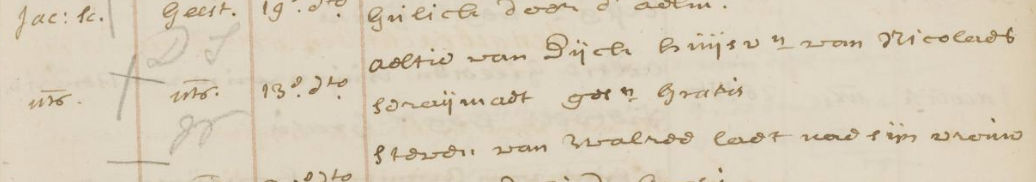 Jac: Sc. Geest. 19.e d.to Gulick door d' adm.
Aeltie van Dijck huijsv.n van Nicolaes
uts. uts. 13.e d.to Schaijmaet ges.n Gratis
Steven van Walree laet nae sijn vrouw